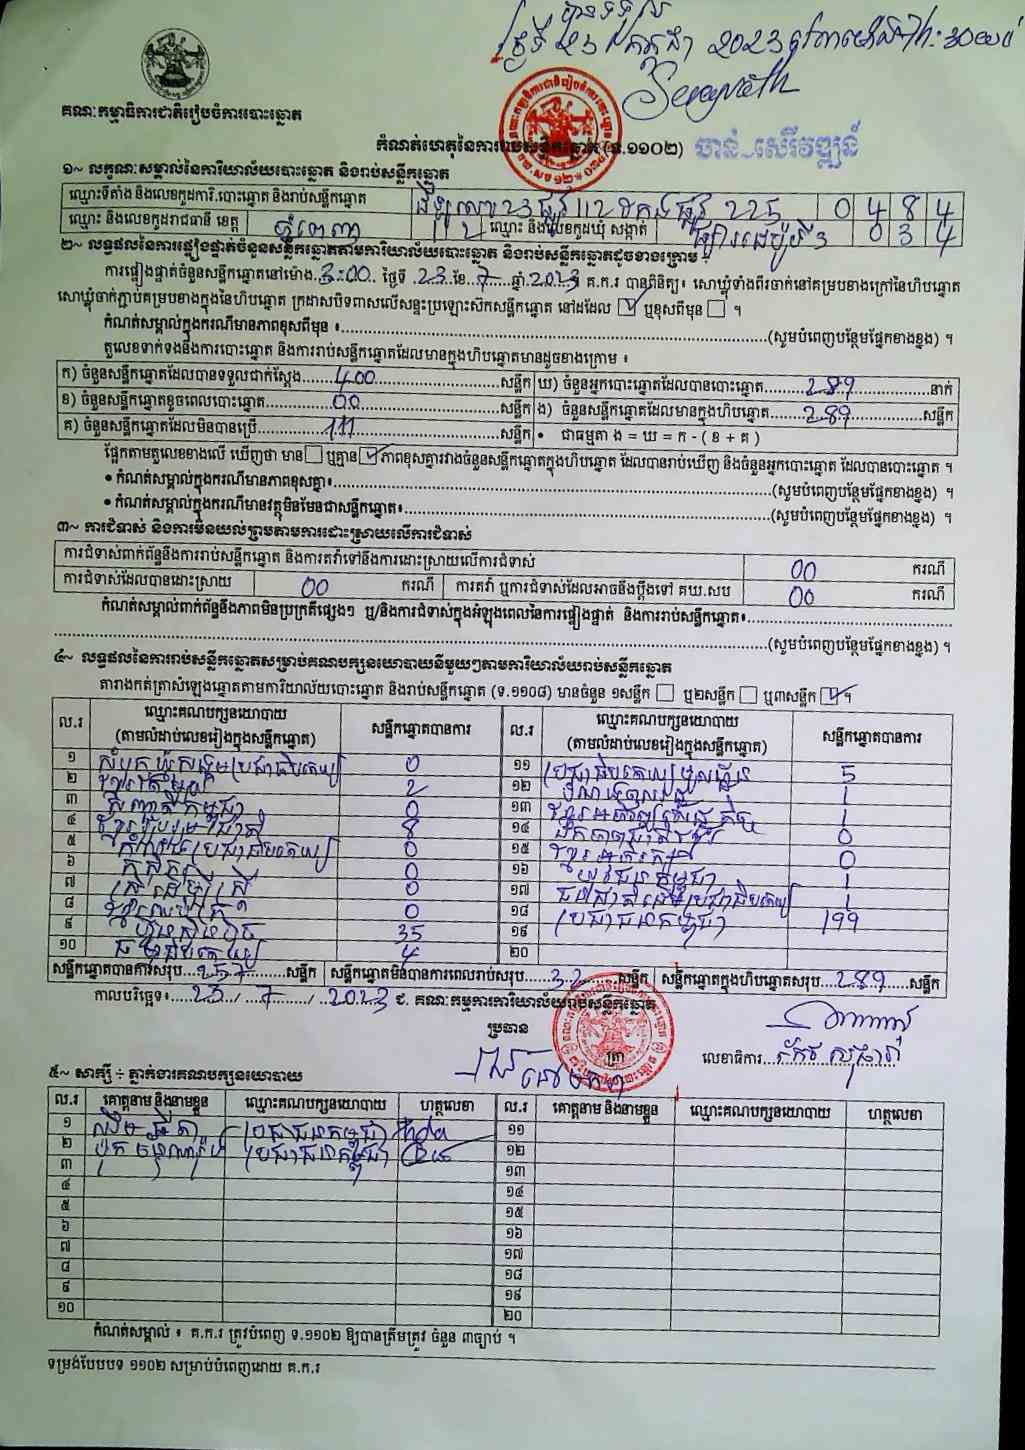 ២៣ កក្កដា 2023
គណៈកម្មាធិការជាតិរៀបចំការបោះឆ្នោត
កំណត់ហេតុនៃការរាប់សន្លឹកឆ្នោត (ទ.១១០២) ចាន់ សេរីវឌ្ឍន៍
១~ លក្ខណៈសម្គាល់នៃការិយាល័យបោះឆ្នោត និងរាប់សន្លឹកឆ្នោត
ឈ្មោះទីតាំង និងលេខកូដការិ.បោះឆ្នោត និងរាប់សន្លឹកឆ្នោត 0 4 8 4
ឈ្មោះ និងលេខកូដរាជធានី ខេត្ត ភ្នំពេញ 12 ឈ្មោះ និងលេខកូដឃុំ សង្កាត់ ផ្សារដេប៉ូទី 3 0 3 4
២~ លទ្ធផលនៃការផ្ទៀងផ្ទាត់ចំនួនសន្លឹកឆ្នោតតាមការិយាល័យបោះឆ្នោត និងរាប់សន្លឹកឆ្នោតដូចខាងក្រោម ៖
ការផ្ទៀងផ្ទាត់ចំនួនសន្លឹកឆ្នោតនៅម៉ោង 3:00 ថ្ងៃទី 23 ខែ 7 ឆ្នាំ 2023 គ.ក.រ បានពិនិត្យ៖ សោឃ្លុំទាំងពីរចាក់នៅគម្របខាងក្រៅនៃហិបឆ្នោត
សោឃ្លុំចាក់ភ្ជាប់គម្របខាងក្នុងនៃហិបឆ្នោត ក្រដាសបិទពាសលើសន្ទះប្រឡោះស៊កសន្លឹកឆ្នោត នៅដដែល ☑ ឬខុសពីមុន ☐ ។
កំណត់សម្គាល់ក្នុងករណីមានភាពខុសពីមុន ៖ (សូមបំពេញបន្ថែមផ្នែកខាងខ្នង) ។
តួលេខទាក់ទងនឹងការបោះឆ្នោត និងការរាប់សន្លឹកឆ្នោតដែលមានក្នុងហិបឆ្នោតមានដូចខាងក្រោម ៖
ក) ចំនួនសន្លឹកឆ្នោតដែលបានទទួលជាក់ស្តែង 400 សន្លឹក ឃ) ចំនួនអ្នកបោះឆ្នោតដែលបានបោះឆ្នោត 289 នាក់
ខ) ចំនួនសន្លឹកឆ្នោតខូចពេលបោះឆ្នោត 00 សន្លឹក ង) ចំនួនសន្លឹកឆ្នោតដែលមានក្នុងហិបឆ្នោត 289 សន្លឹក
គ) ចំនួនសន្លឹកឆ្នោតដែលមិនបានប្រើ 111 សន្លឹក • ជាធម្មតា ង = ឃ = ក - ( ខ + គ )
ផ្អែកតាមតួលេខខាងលើ ឃើញថា មាន ☐ ឬគ្មាន ☑ ភាពខុសគ្នារវាងចំនួនសន្លឹកឆ្នោតក្នុងហិបឆ្នោត ដែលបានរាប់ឃើញ និងចំនួនអ្នកបោះឆ្នោត ដែលបានបោះឆ្នោត ។
• កំណត់សម្គាល់ក្នុងករណីមានភាពខុសគ្នា៖ (សូមបំពេញបន្ថែមផ្នែកខាងខ្នង) ។
• កំណត់សម្គាល់ក្នុងករណីមានវត្ថុមិនមែនជាសន្លឹកឆ្នោត៖ (សូមបំពេញបន្ថែមផ្នែកខាងខ្នង) ។
៣~ ការជំទាស់ និងការមិនយល់ព្រមតាមការដោះស្រាយលើការជំទាស់
ការជំទាស់ពាក់ព័ន្ធនឹងការរាប់សន្លឹកឆ្នោត និងការតវ៉ាទៅនឹងការដោះស្រាយលើការជំទាស់ 00 ករណី
ការជំទាស់ដែលបានដោះស្រាយ 00 ករណី ការតវ៉ា ឬការជំទាស់ដែលអាចនឹងប្តឹងទៅ គឃ.សប 00 ករណី
កំណត់សម្គាល់ពាក់ព័ន្ធនឹងភាពមិនប្រក្រតីផ្សេងៗ ឬ/និងការជំទាស់ក្នុងអំឡុងពេលនៃការផ្ទៀងផ្ទាត់ និងការរាប់សន្លឹកឆ្នោត៖
(សូមបំពេញបន្ថែមផ្នែកខាងខ្នង) ។
៤~ លទ្ធផលនៃការរាប់សន្លឹកឆ្នោតសម្រាប់គណបក្សនយោបាយនីមួយៗតាមការិយាល័យរាប់សន្លឹកឆ្នោត
តារាងកត់ត្រាសំឡេងឆ្នោតតាមការិយាល័យបោះឆ្នោត និងរាប់សន្លឹកឆ្នោត (ទ.១១០៨) មានចំនួន ១សន្លឹក ☐ ឬ២សន្លឹក ☐ ឬ៣សន្លឹក ☑ ។
ល.រ ឈ្មោះគណបក្សនយោបាយ (តាមលំដាប់លេខរៀងក្នុងសន្លឹកឆ្នោត) សន្លឹកឆ្នោតបានការ ល.រ ឈ្មោះគណបក្សនយោបាយ (តាមលំដាប់លេខរៀងក្នុងសន្លឹកឆ្នោត) សន្លឹកឆ្នោតបានការ
១ សំបុកឃ្មុំសង្គមប្រជាធិបតេយ្យ 0 ១១ 5
២ 2 ១២ 1
៣ កម្ពុជា 0 ១៣ 1
៤ ខ្មែររួបរួមជាតិ 8 ១៤ 0
៥ កំណែនប្រជាធិបតេយ្យ 0 ១៥ 0
៦ កសិករ 0 ១៦ យុវជនកម្ពុជា 1
៧ ស្ត្រីដើម្បីស្ត្រី 0 ១៧ ជនជាតិដើមប្រជាធិបតេយ្យ 1
៨ 0 ១៨ ប្រជាជនកម្ពុជា 199
៩ ហ៊្វុនស៊ិនប៉ិច 35 ១៩
១០ ធម្មាធិបតេយ្យ 4 ២០
សន្លឹកឆ្នោតបានការសរុប 257 សន្លឹក សន្លឹកឆ្នោតមិនបានការពេលរាប់សរុប 32 សន្លឹក សន្លឹកឆ្នោតក្នុងហិបឆ្នោតសរុប 289 សន្លឹក
កាលបរិច្ឆេទ៖ 23 / 7 / 2023 ជ. គណៈកម្មការការិយាល័យរាប់សន្លឹកឆ្នោត
ប្រធាន
ត្រា លេខាធិការ
៥~ សាក្សី ÷ ភ្នាក់ងារគណបក្សនយោបាយ
ល.រ គោត្តនាម និងនាមខ្លួន ឈ្មោះគណបក្សនយោបាយ ហត្ថលេខា ល.រ គោត្តនាម និងនាមខ្លួន ឈ្មោះគណបក្សនយោបាយ ហត្ថលេខា
១ ប្រជាជនកម្ពុជា ១១
២ ប្រជាជនកម្ពុជា ១២
៣ ១៣
៤ ១៤
៥ ១៥
៦ ១៦
៧ ១៧
៨ ១៨
៩ ១៩
១០ ២០
កំណត់សម្គាល់ ៖ គ.ក.រ ត្រូវបំពេញ ទ.១១០២ ឱ្យបានត្រឹមត្រូវ ចំនួន ៣ច្បាប់ ។
ទម្រង់បែបបទ ១១០២ សម្រាប់បំពេញដោយ គ.ក.រ